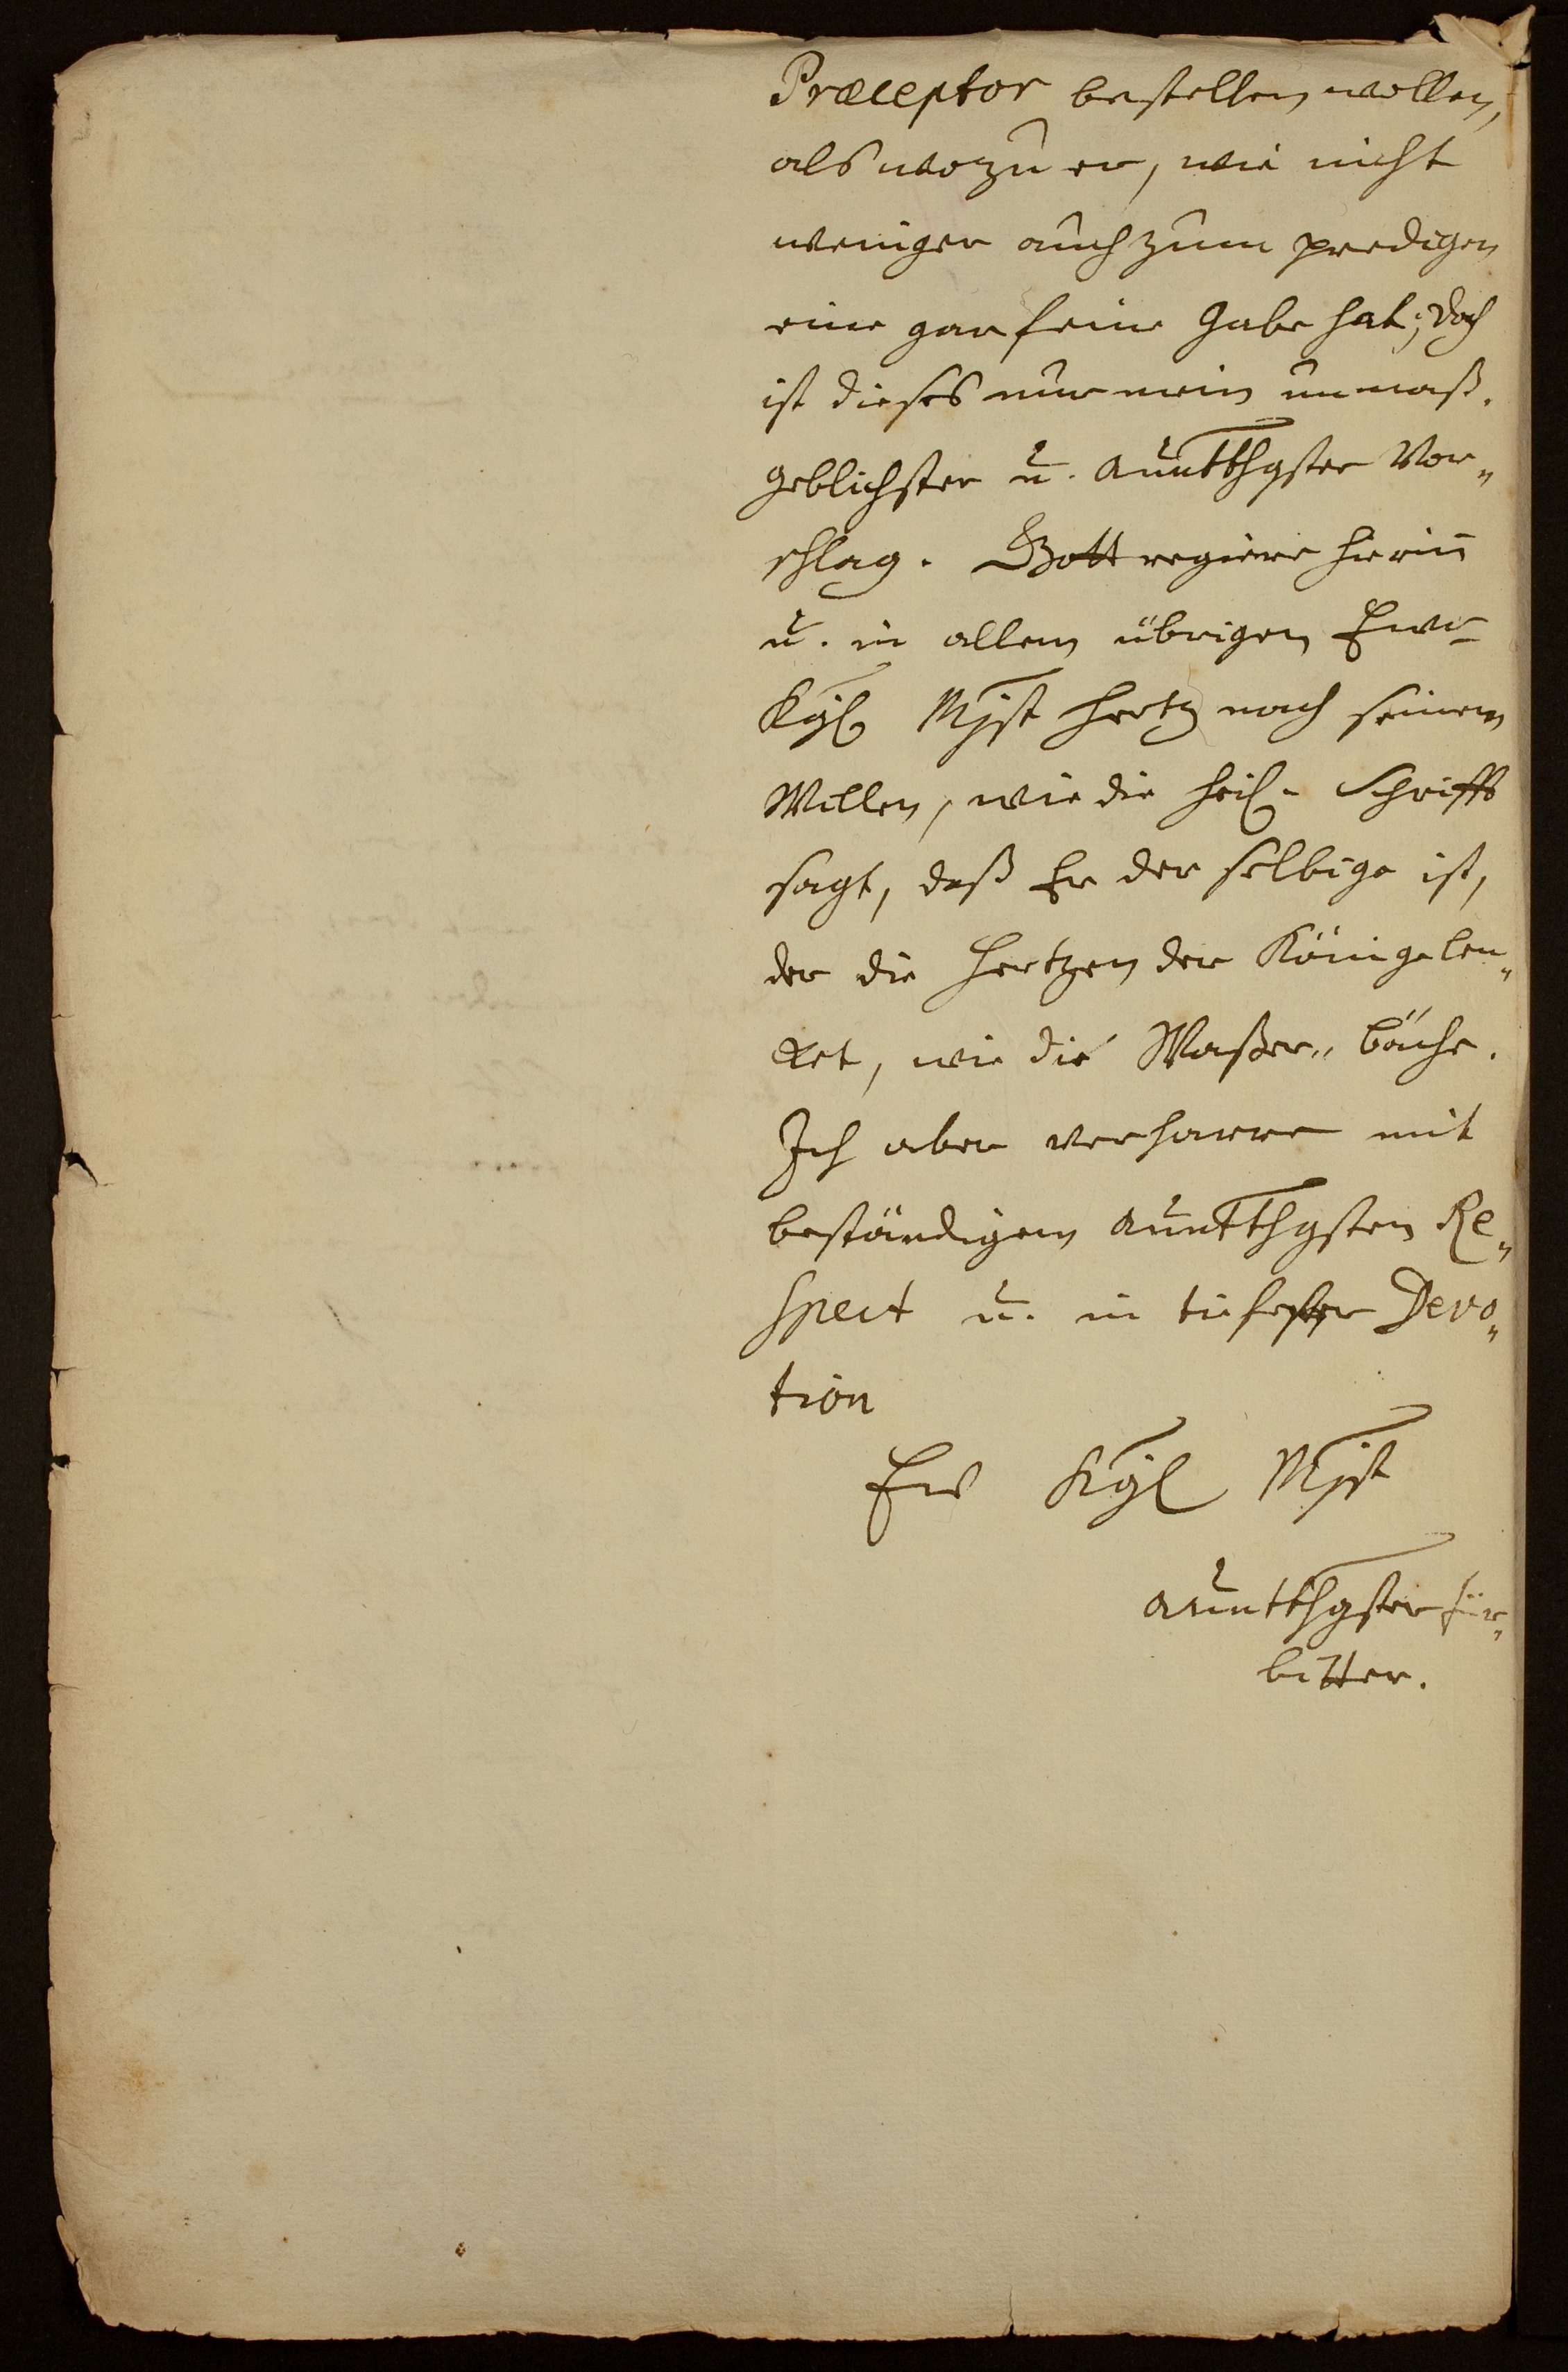 Præceptor bestellen wollen,
als wozu er, wie nicht
weniger auch zum predigen
eine gar feine Gabe hat; doch
ist dieses nur mein unmaß¬
geblichster u. auntthgster Vor„
schlag. Gott regiere hierin̄
u. in allem übrigen Ewr
Kgl Mjst Hertz nach seinem
Willen, wie die heil. Schrifft
sagt, daß Er der selbige ist,
der die Hertzen der Könige len„
ket, wie die Waßer„ bäche.
Ich aber verharre mit
beständigem auntthgsten Re„
spect u. in tiefester Devo„
tion
Ew Kgl Mjst
auntthgster für„
bitter.